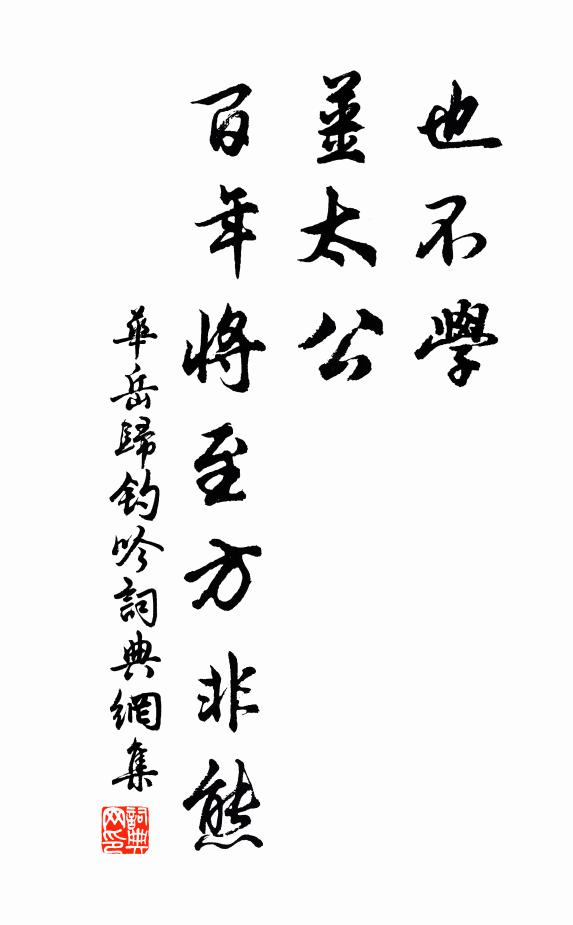 也不學
薑太公
百年將至方非熊
華岳歸釣吟詞典網集
詞典
网印